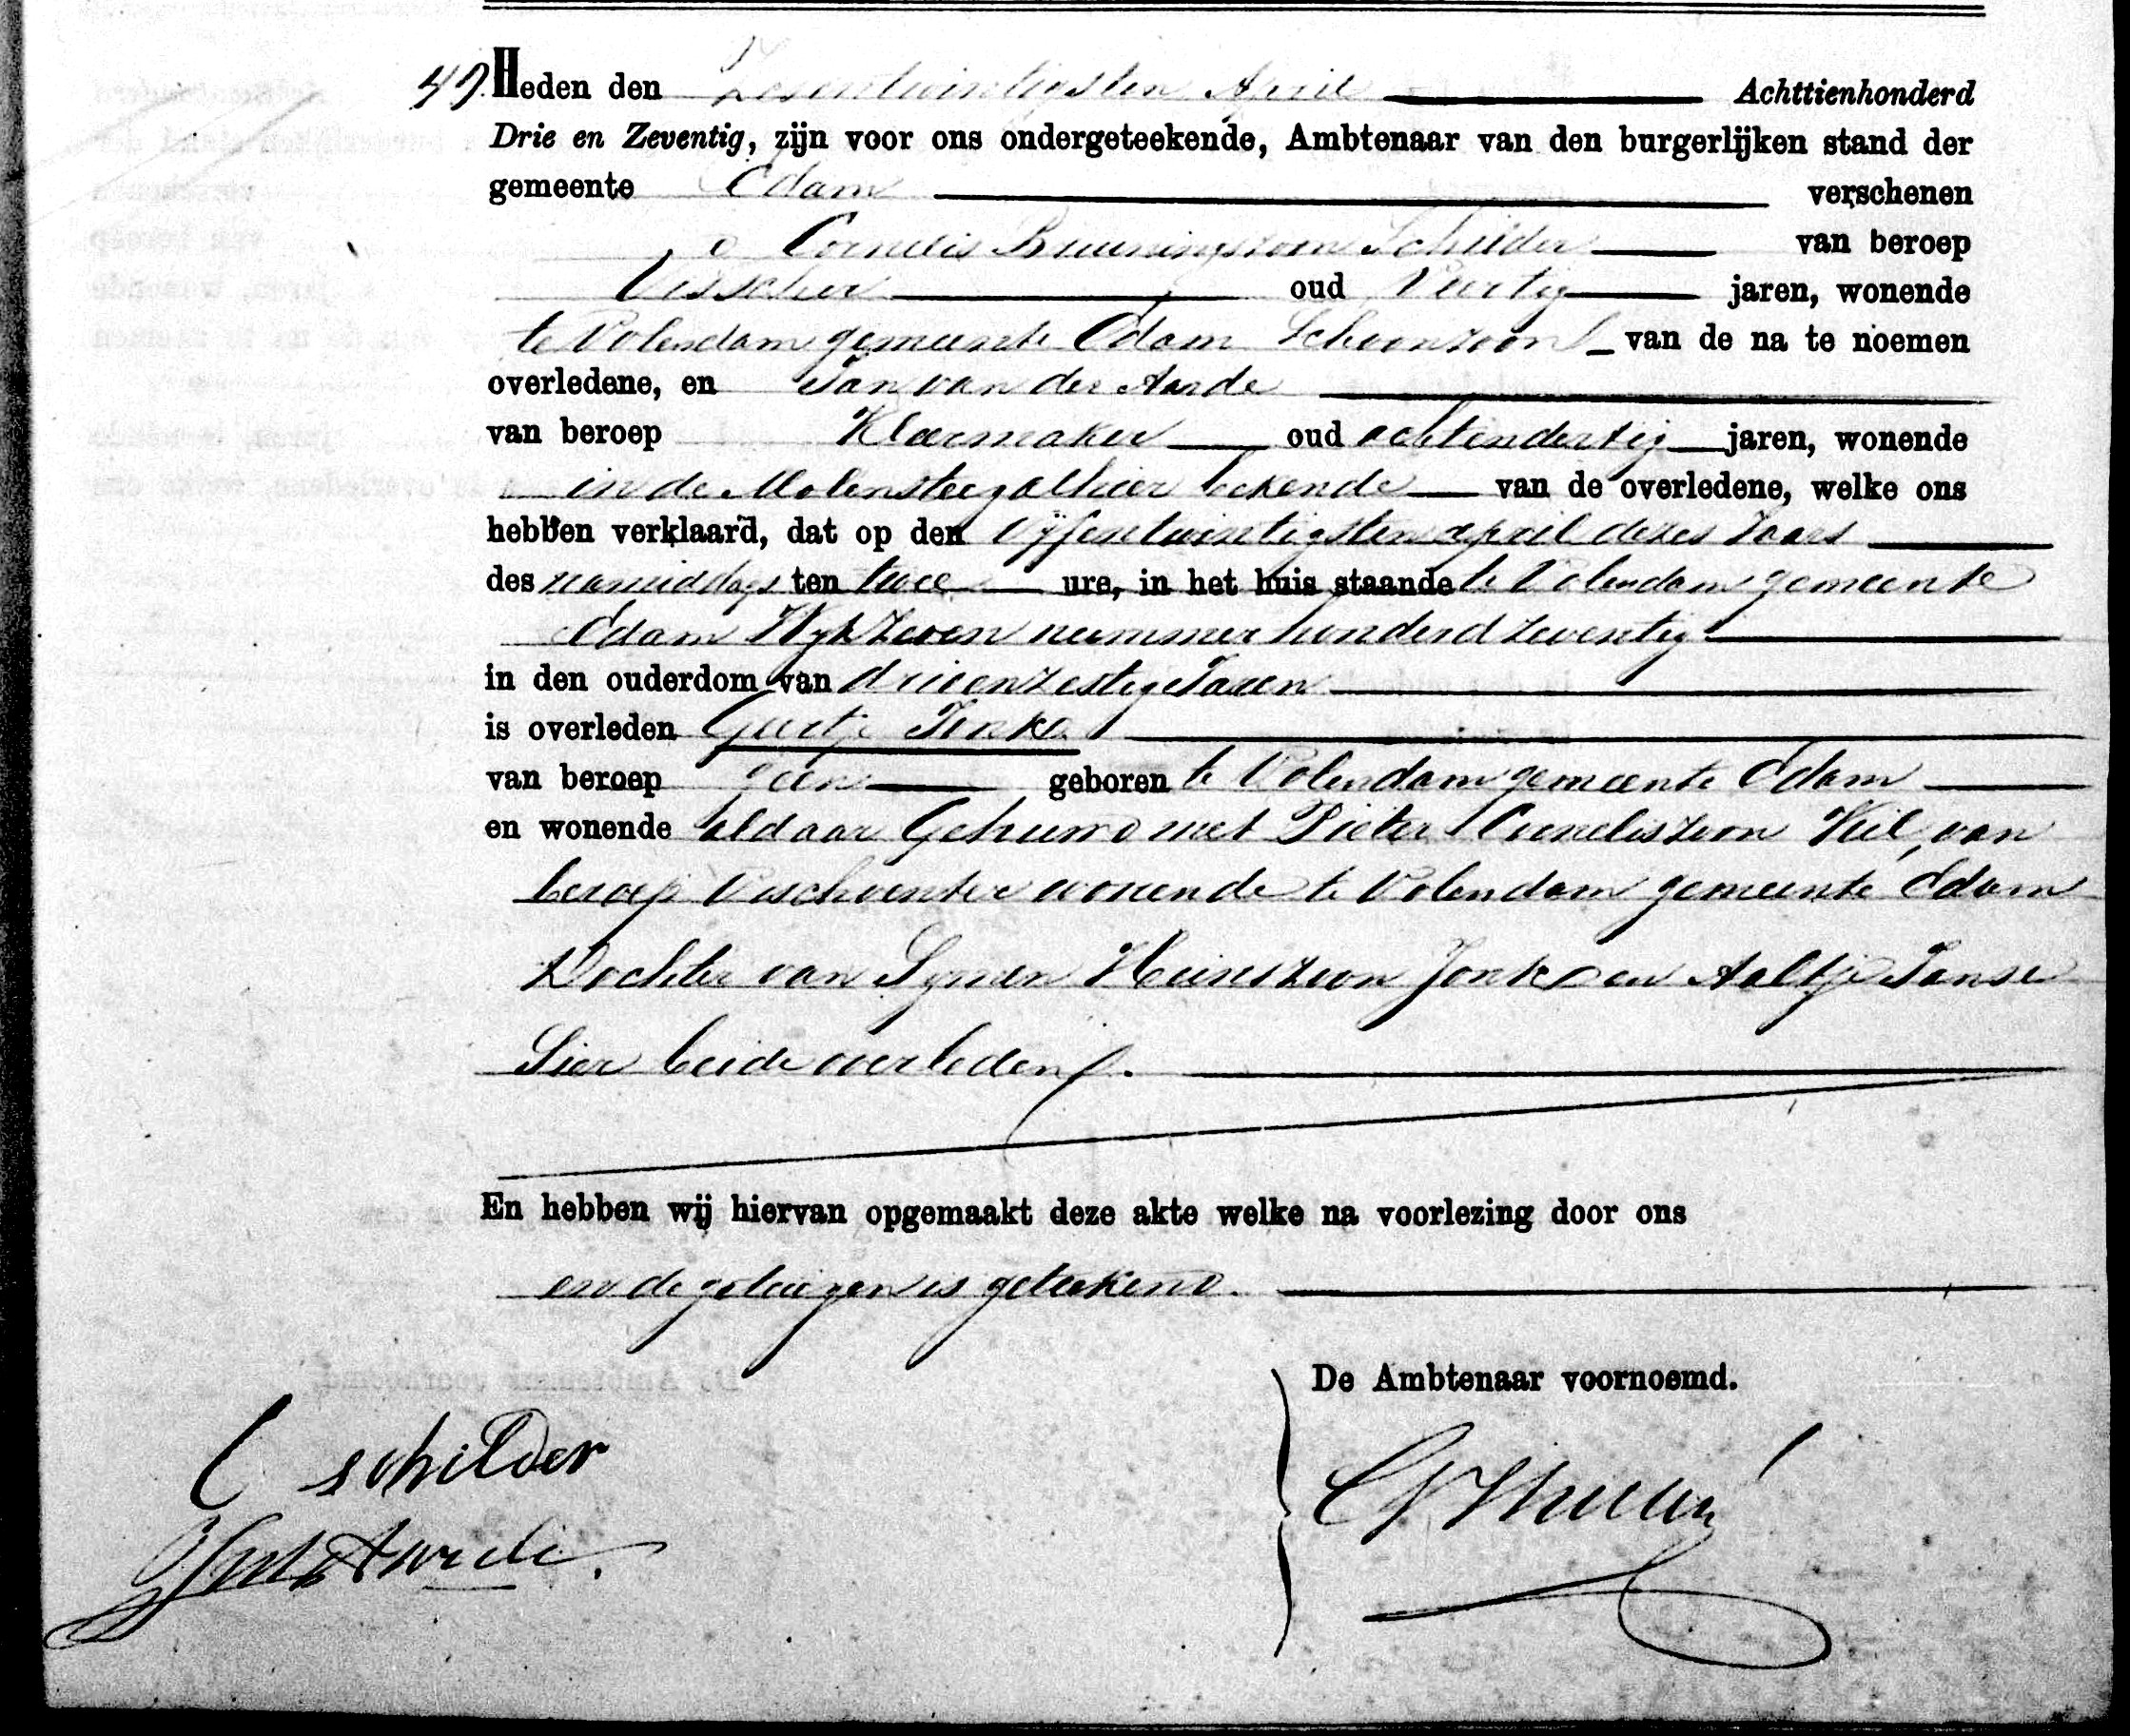 49. Heden den Zesentwintigsten April Achttienhonderd
Drie en Zeventig, zijn voor ons ondergeteekende, Ambtenaar van den burgerlijken stand der
gemeente Edam verschenen
Cornelis Bruuningzoon Schilder van beroep
Visscher oud Veertig jaren, wonende
te Volendam gemeente Edam Schoonzoon van de na te noemen
overledene, en Jan van der Aarde
van beroep Kleermaker oud achtendertig jaren, wonende
in de Molensteeg alhier bekende van de overledene, welke ons
hebben verklaard, dat op den Vijfentwintigsten april dezes Jaars
des namiddags ten twee ure, in het huis staande te Volendam gemeente
Edam Wijk Zeven nummer honderd zeventig
in den ouderdom van drieenzestig Jaren
is overleden Geertje Jonk
van beroep geen geboren te Volendam gemeente Edam
en wonende aldaar Gehuwd met Pieter Corneliszoon Keil, van
beroep Vischventer wonende te Volendam gemeente Edam
Dochter van Symen Heinszoon Jonk en Aaltje Janse
Sier beide overleden.
En hebben wij hiervan opgemaakt deze akte welke na voorlezing door ons
en de getuigen is geteekend.
De Ambtenaar voornoemd.
C schilder
Aarde.